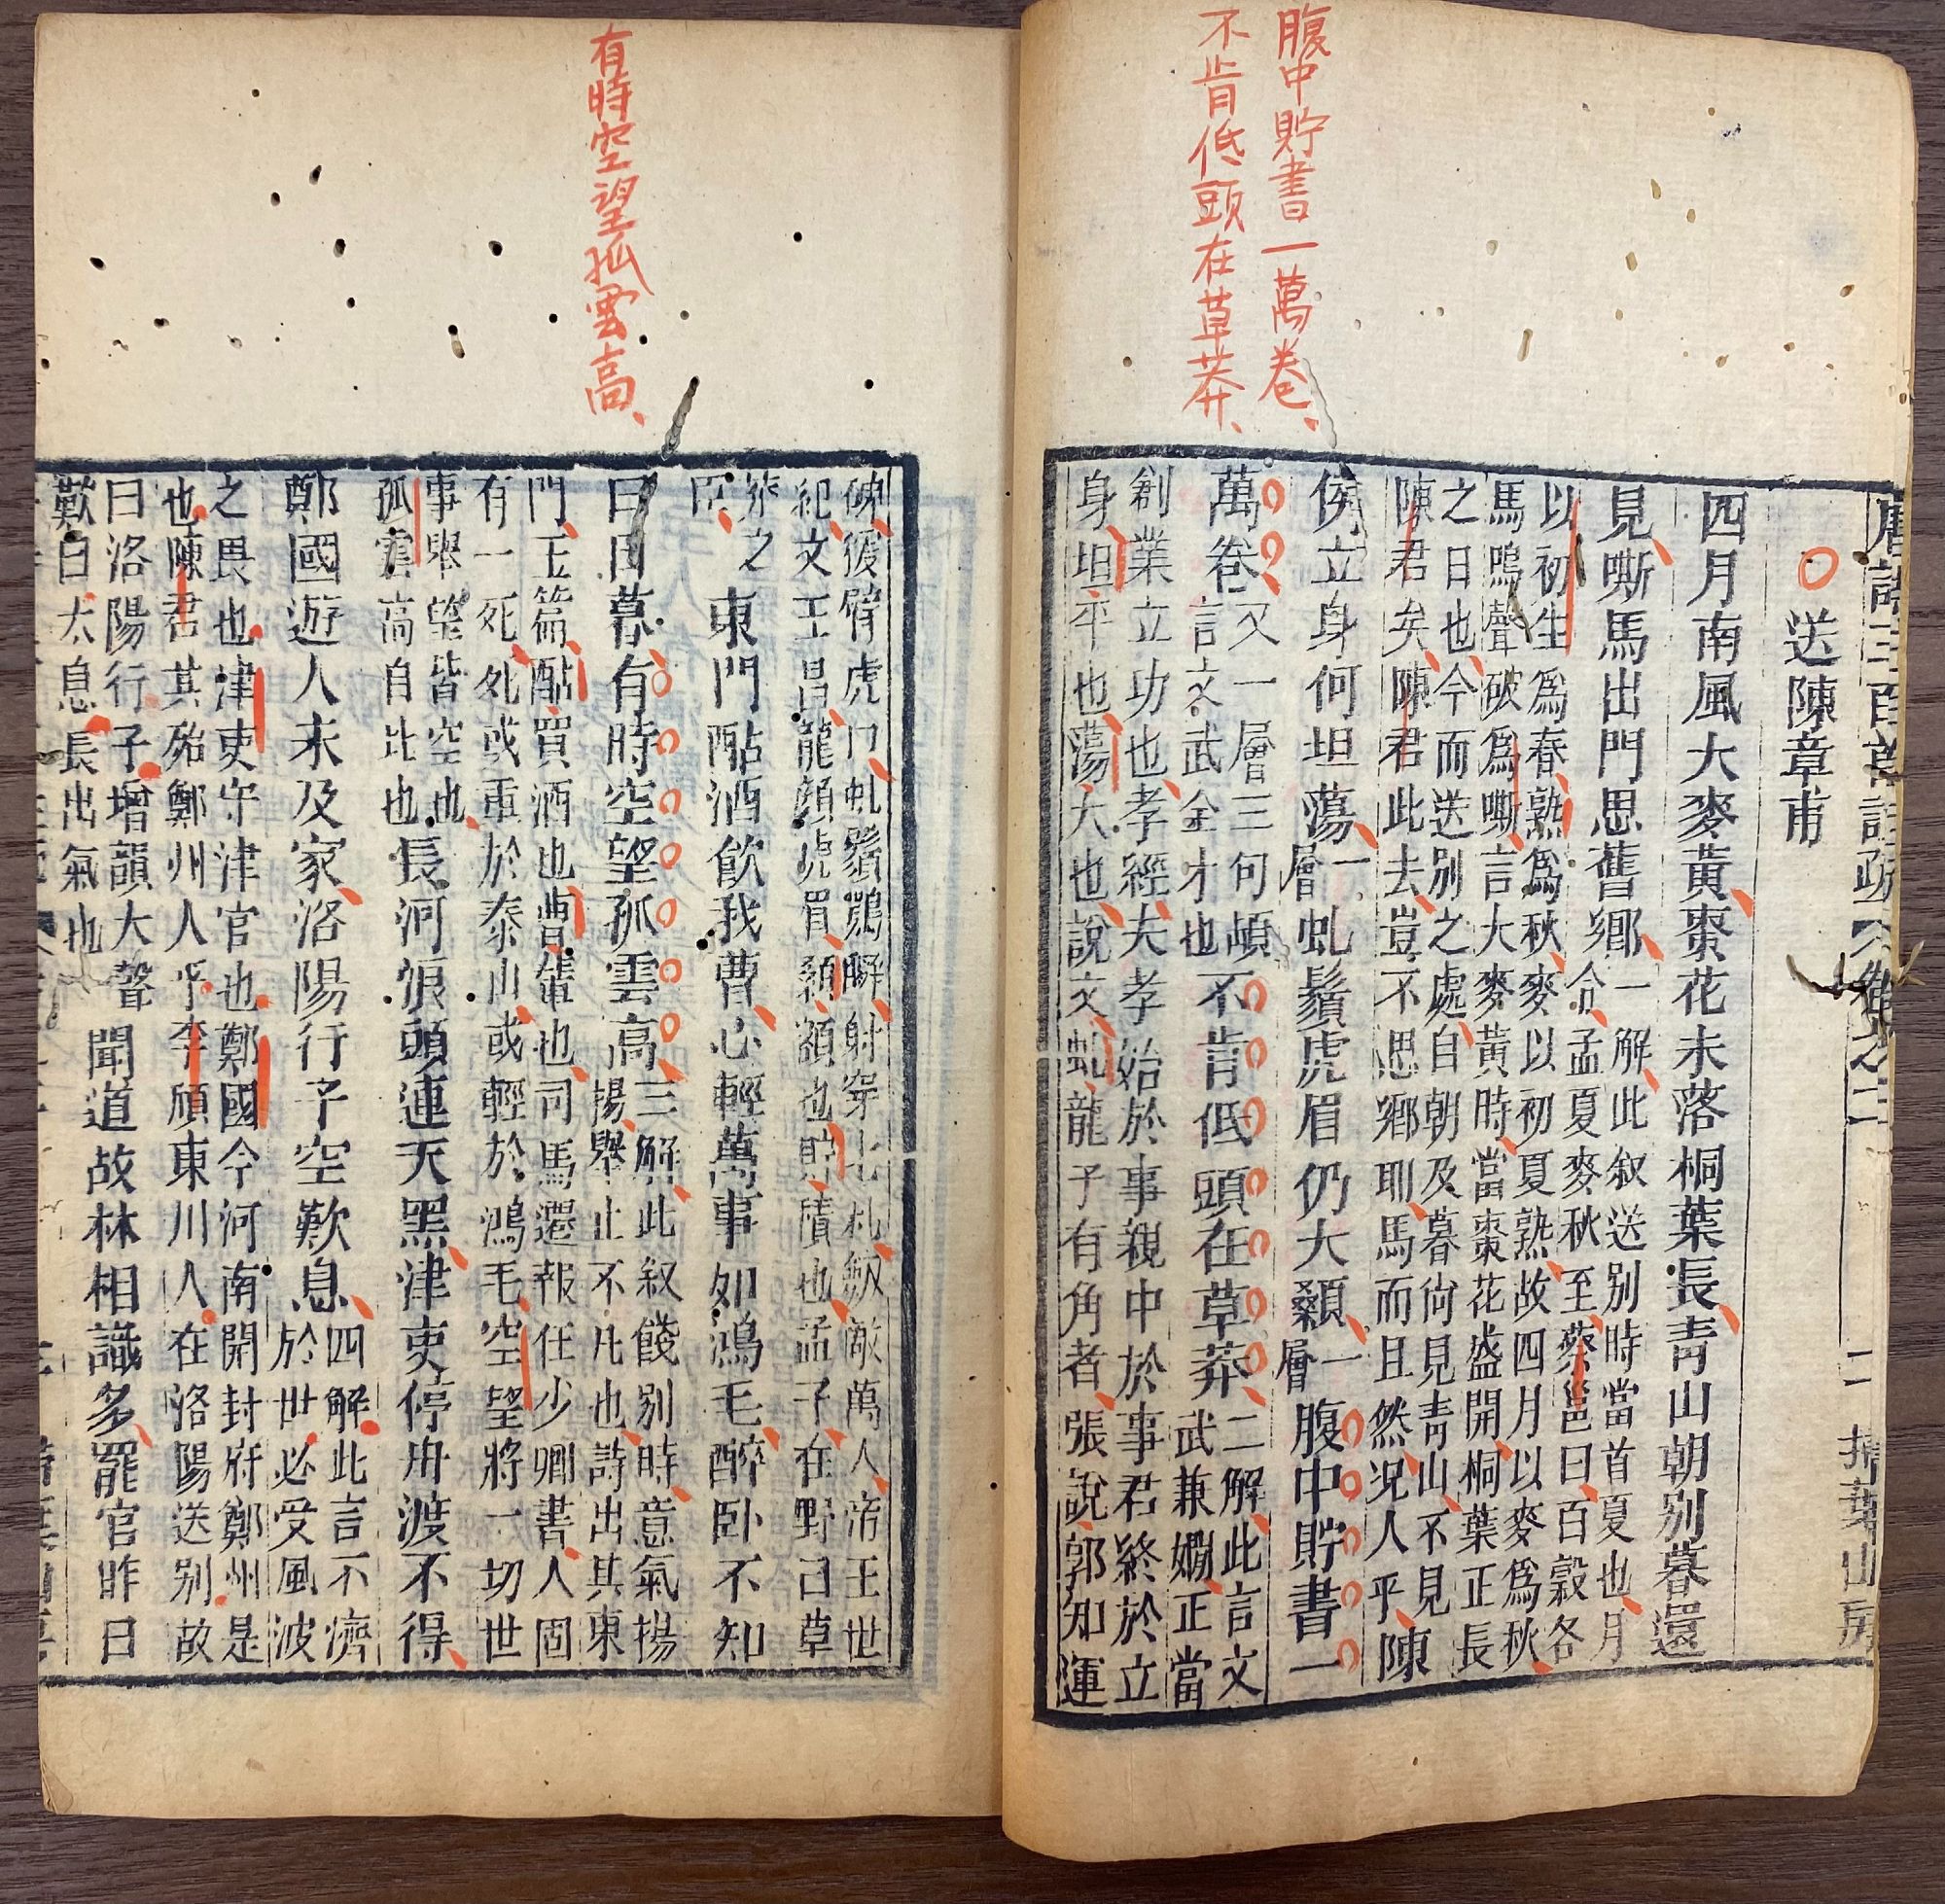 腹中貯書一萬卷、
不肯低頭在草莽、
唐詩三百首註疏 卷之二 二 掃葉山房
送陳章甫
四月南風大麥黃棗花未落桐葉長青山朝別暮還
見嘶馬出門思舊鄉
一解此叙送別時當首夏也月
令孟夏麥秋至蔡邕曰百穀各
以初生為春熟為秋麥以初夏熟故四月以麥為秋
馬鳴聲破為嘶言大麥黃時當棗花盛開桐葉正長
之日也今而送別之處自朝及暮尙見青山不見
陳君矣陳君此去豈不思鄉耶馬而且然况人乎
陳
侯立身何坦蕩一層虬鬚虎眉仍大顙一層腹中貯書一
萬卷
又一層三句頓
言文武全才也
不肯低頭在草莽
二解此言文
武兼嫺正當
創業立功也孝經夫孝始於事親中於事君終於立
身坦平也蕩大也說文虬龍子有角者張說郭知運
有時空望孤雲高、
碑猨臂虎口虬鬚鶚瞬射穿七札劔敵萬人帝王世
紀文王昌龍顏虎眉顙額也貯積也孟子在野曰草
莽之
臣
東門酤酒飲我曹心輕萬事如鴻毛醉卧不知
白日暮有時空望孤雲高
三解此叙餞別時意氣揚
揚舉止不凡也詩出其東
門玉篇酤買酒也曹輩也司馬遷報任少卿書人固
有一死死或重於泰山或輕於鴻毛空望將一切世
事舉望皆空也
孤雲高自比也
長河浪頭連天黑津吏停舟渡不得
鄭國遊人未及家洛陽行子空歎息
四解此言不濟
於世必受風波
之畏也津吏守津官也鄭國今河南開封府鄭州是
也陳君其殆鄭州人乎李頎東川人在洛陽送別故
曰洛陽行子增韻大聲
歎曰太息長出氣也
聞道故林相識多罷官昨日